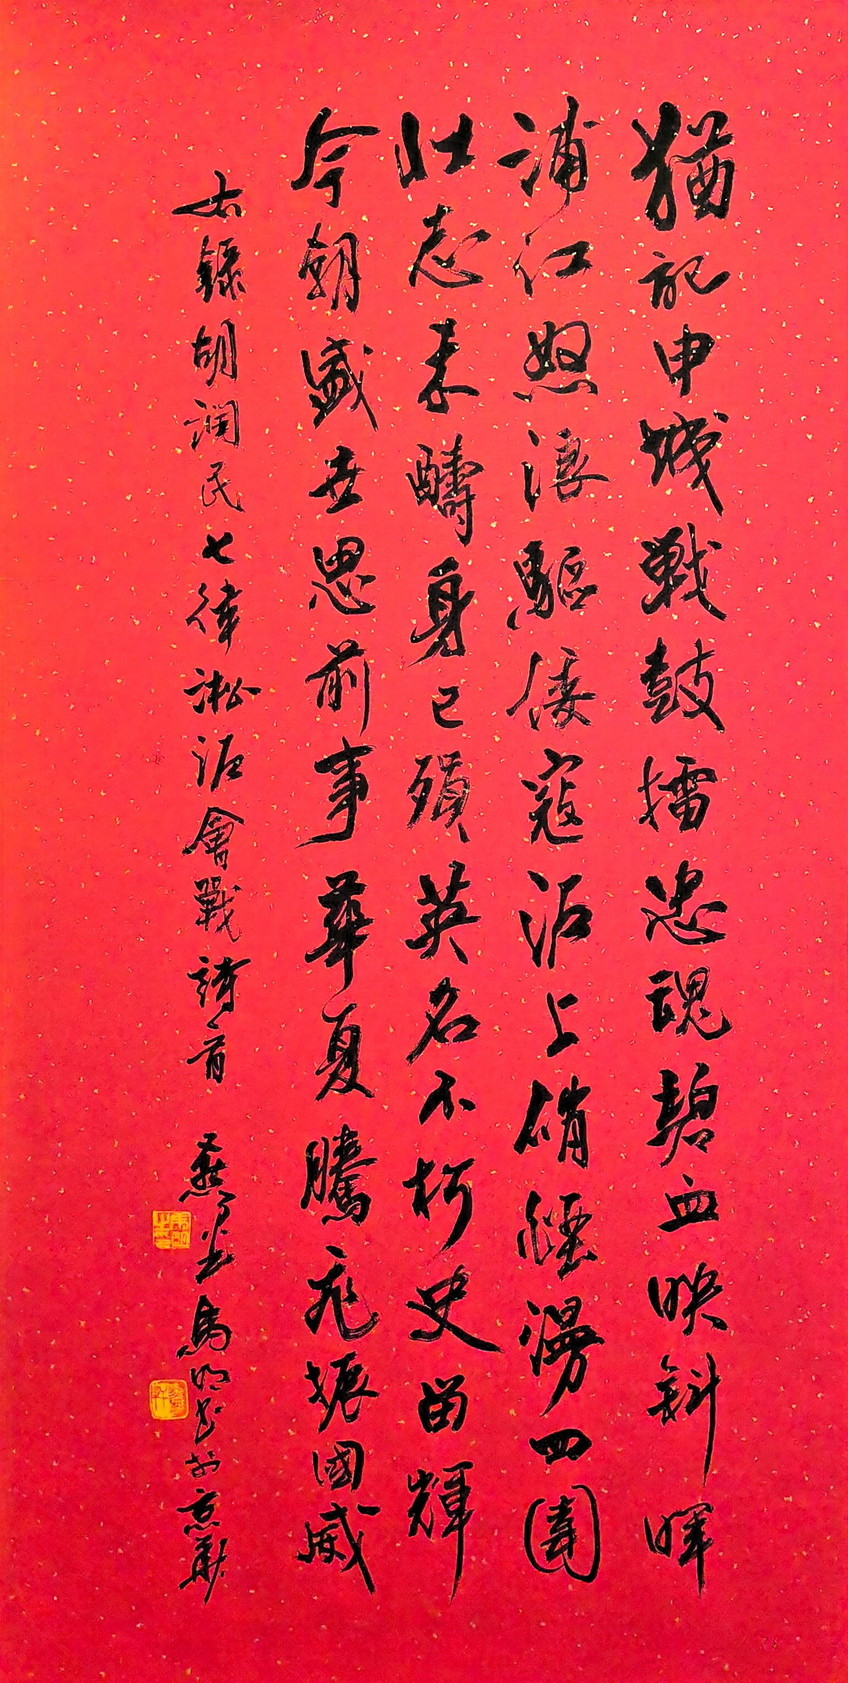 猶記申城戰鼓擂忠魂碧血映斜暉
浦江怒浪驅倭寇沪上硝煙漫四圍
壯志未酬身已殞英名不朽史留輝
今朝盛世思前事華夏騰飛振國威
右錄胡潤民七律淞沪會戰詩一首 燕山馬明書於京華